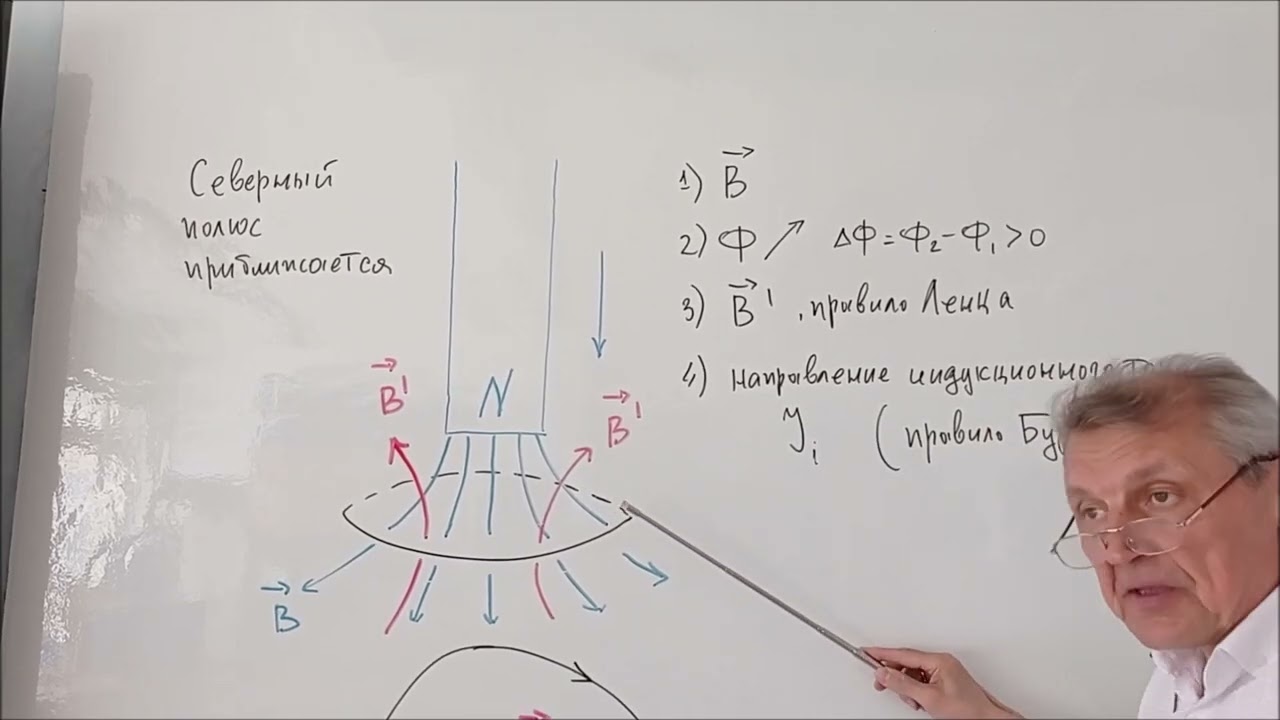 Северный
полюс
приближается
1) B
2) Ф ↗ ΔФ = Ф₂ - Ф₁ > 0
3) B' , правило Ленца
4) направление индукционного
Ji (правило
B'
N
B'
B